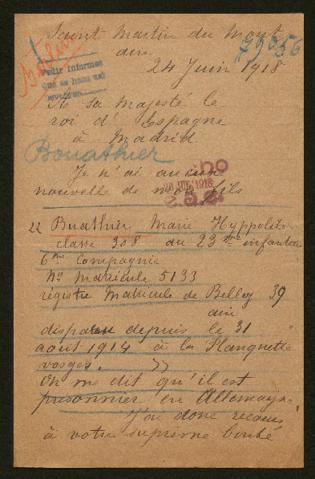 Saint Martin du Mont
ain
79056
24 Juin 1918
Pedir informes
que se haga así
A sa majesté le
roi d'Espagne
à Madrid
Bouathier
Je n'ai aucun
nouvelle de mon fils
22 Buathier Marie Hyppolite
classe 308 au 23me infanterie
6me Compagnie
No Matricule 5133
régistre Matricule de Belley 39
ain
disparu depuis le 31
août 1914 à la Planquette
vosges.
On me dit qu'il est
prisonnier en Allemagne
J'ai donc recours
à votre suprême bonté